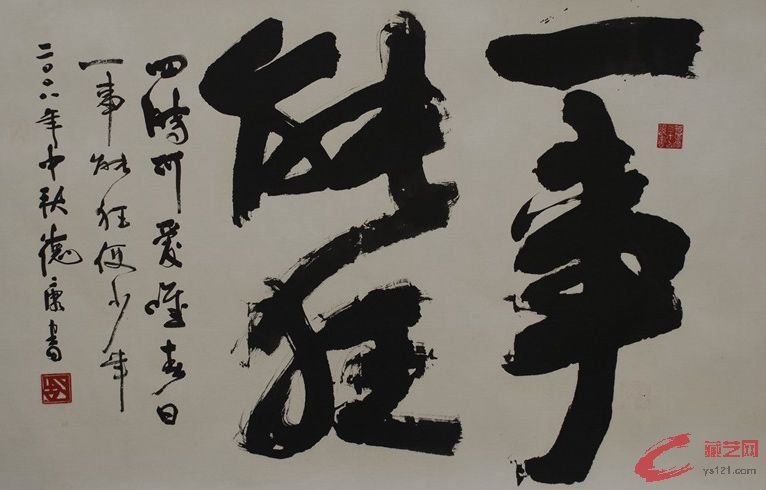 一事
能狂
四時可愛唯春日
一事能狂便少年
二〇〇八年中秋德康書
藏艺网
ys121.com